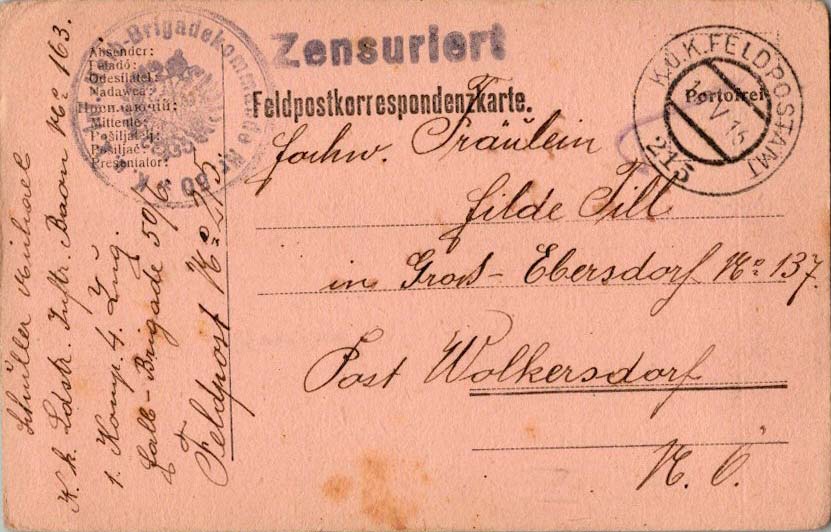 Zensuriert
Feldpostkorrespondenzkarte.
Absender:
Feladó:
Odesílatel:
Nadawca:
Mittente:
Pošiljatelj:
Pošiljač:
Presentator:
-Brigadekommando Nr. 50
K.U.K. FELDPOSTAMT
Portofrei
V 16
215
Hochw. Fräulein
Hilde Till
in Groß-Ebersdorf No 137.
Post Wolkersdorf
N. Ö.
Schüller Michael
K. k. Ldstr. Inftr. Baon No 163.
1. Komp. 4. Zug.
Halb-Brigade 50/b
Feldpost No 215